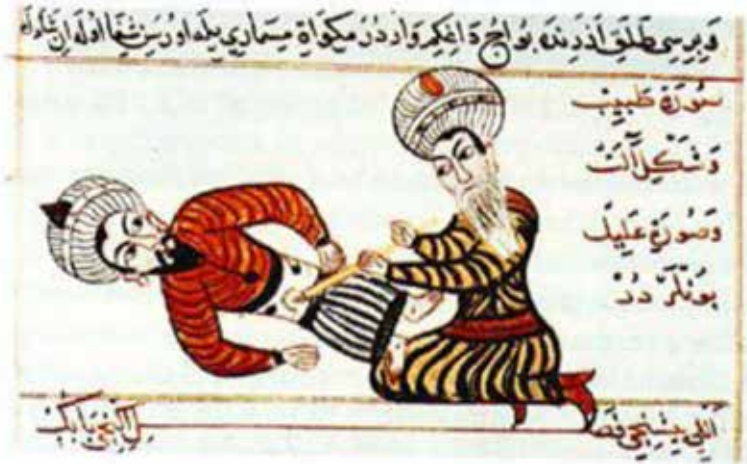 وبرسی طلق اذرنده بو اج داغکم واردر مکواة مسماری یله اورسن شفا اوله ان شا الله
صورة طبیب
وشکل آلت
وصورة علیل
بونلر در
اللی یتنجی فصل اکنجی بابک